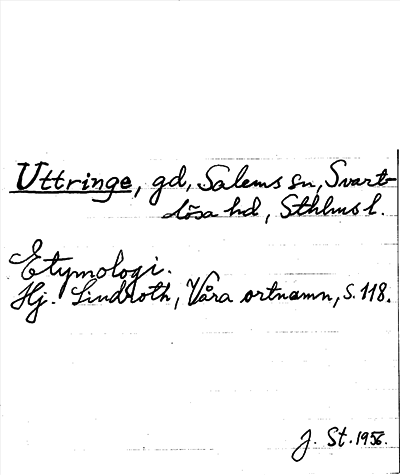 Uttringe, gd, Salems sn, Svart-
lösa hd, Sthlms l.
Etymologi.
Hj. Lindroth, Våra ortnamn, s. 118.
J. St. 1956.